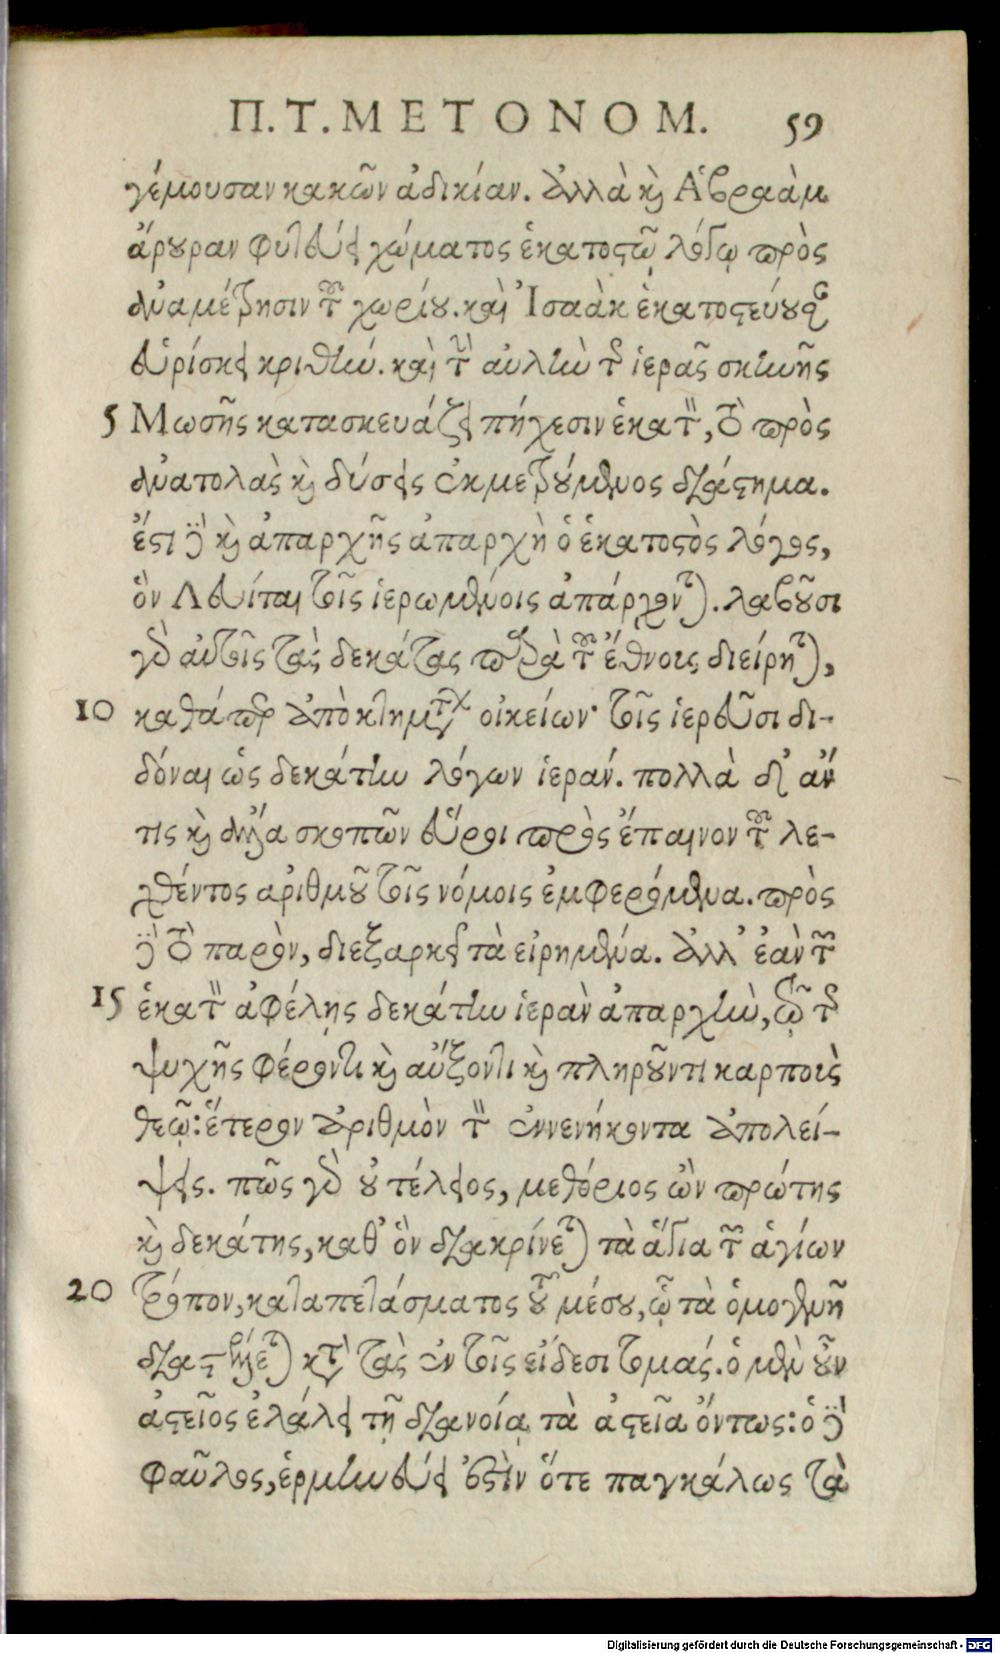 Π.Τ.ΜΕΤΟΝΟΜ. 59
γέμουσαν κακῶν ἀδικίαν. ἀλλὰ καὶ Ἀβραὰμ
ἄρουραν φυτεύει χώματος ἑκατοστῷ λόγῳ πρὸς
ἀναμέτρησιν τοῦ χωρίου. καὶ Ἰσαὰκ ἑκατοστεύουσαν
εὑρίσκει κριθήν. καὶ τὴν αὐλὴν τῆς ἱερᾶς σκηνῆς
5 Μωσῆς κατασκευάζει πήχεσιν ἑκατὸν, τὸ πρὸς
ἀνατολὰς καὶ δύσεις ἐκμετρούμενος διάστημα.
ἔστι δὲ καὶ ἀπαρχῆς ἀπαρχὴ ὁ ἑκατοστὸς λόγος,
ὃν Λευίται τοῖς ἱερωμένοις ἀπάρχονται. λαβοῦσι
γὰρ αὐτοῖς τὰς δεκάτας παρὰ τοῦ ἔθνους διείρηται,
10 καθάπερ ἀπὸ κτημάτων οἰκείων· τοῖς ἱερεῦσι δι-
δόναι ὡς δεκάτην λόγων ἱεράν. πολλὰ δ' ἄν
τις καὶ ἄλλα σκοπῶν εὕροι πρὸς ἔπαινον τοῦ λε-
χθέντος ἀριθμοῦ τοῖς νόμοις ἐμφερόμενα. πρὸς
δὲ τὸ παρὸν, διεξαρκεῖ τὰ εἰρημένα. ἀλλ' ἐὰν τῶν
15 ἑκατὸν ἀφέλῃς δεκάτην ἱερὰν ἀπαρχὴν, τῷ τῆς
ψυχῆς φέροντι καὶ αὔξοντι καὶ πληροῦντι καρποὺς
θεῷ: ἕτερον ἀριθμὸν τὸν ἐννενήκοντα ἀπολεί-
ψεις. πῶς γὰρ οὐ τέλειος, μεθόριος ὢν πρώτης
καὶ δεκάτης, καθ' ὃν διακρίνεται τὰ ἅγια τῶν ἁγίων
20 τρόπον, καταπετάσματος τοῦ μέσου, ᾧ τὰ ὁμογενῆ
διαστέλλεται κατὰ τὰς ἐν τοῖς εἴδεσι τομάς. ὁ μὲν οὖν
ἀστεῖος ἐλάλει τῇ διανοίᾳ τὰ ἀστεῖα ὄντως: ὁ δὲ
φαῦλος, ἑρμηνεύει ἐστὶν ὅτε παγκάλως τὰ
Digitalisierung gefördert durch die Deutsche Forschungsgemeinschaft - DFG